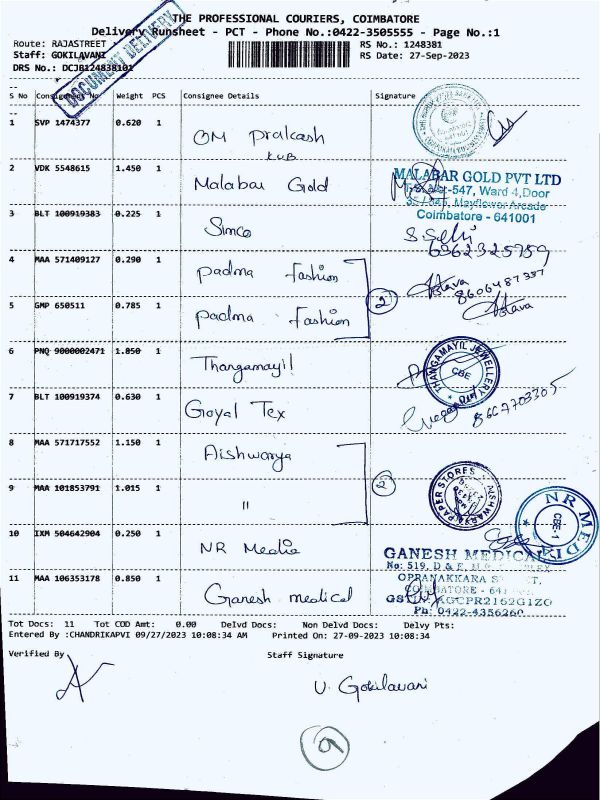 THE PROFESSIONAL COURIERS, COIMBATORE
Delivery Runsheet - PCT - Phone No.:0422-3505555 - Page No.:1
Route: RAJASTREET RS No.: 1248381
Staff: GOKILAVANI RS Date: 27-Sep-2023
DRS No.: DCJB124838101
DOCUMENT DELIVERY
S No Consignment No Weight PCS Consignee Details Signature
1 SVP 1474377 0.620 1 OM Prakash
KVB
2 VDK 5548615 1.450 1 Malabar Gold
MALABAR GOLD PVT LTD
547, Ward 4,Door
Mayflower Arcade
Coimbatore - 641001
3 BLT 100919383 0.225 1 Simco
4 MAA 571409127 0.290 1 Padma fashion
5 GMP 650511 0.785 1 padma fashion
2
6 PNQ 9000002471 1.050 1 Thangamayil
THANGAMAYIL JEWELLERY LTD
CBE
7 BLT 100919374 0.630 1 Goyal Tex
8 MAA 571717552 1.150 1 Aishwarya
9 MAA 101853791 1.015 1 "
2
AISHWARYA PAPER STORES
10 IXM 504642904 0.250 1 NR Media
NR MEDIA
CBE-1
11 MAA 106353178 0.850 1 Ganesh medical
GANESH MEDICAL
No: 519, D & E,
OPPANAKKARA
COIMBATORE - 641
Ph: 0422-4356260
Tot Docs: 11 Tot COD Amt: 0.00 Delvd Docs: Non Delvd Docs: Delvy Pts:
Entered By :CHANDRIKAPVI 09/27/2023 10:08:34 AM Printed On: 27-09-2023 10:08:34
Verified By Staff Signature
V. Gokilavani
9